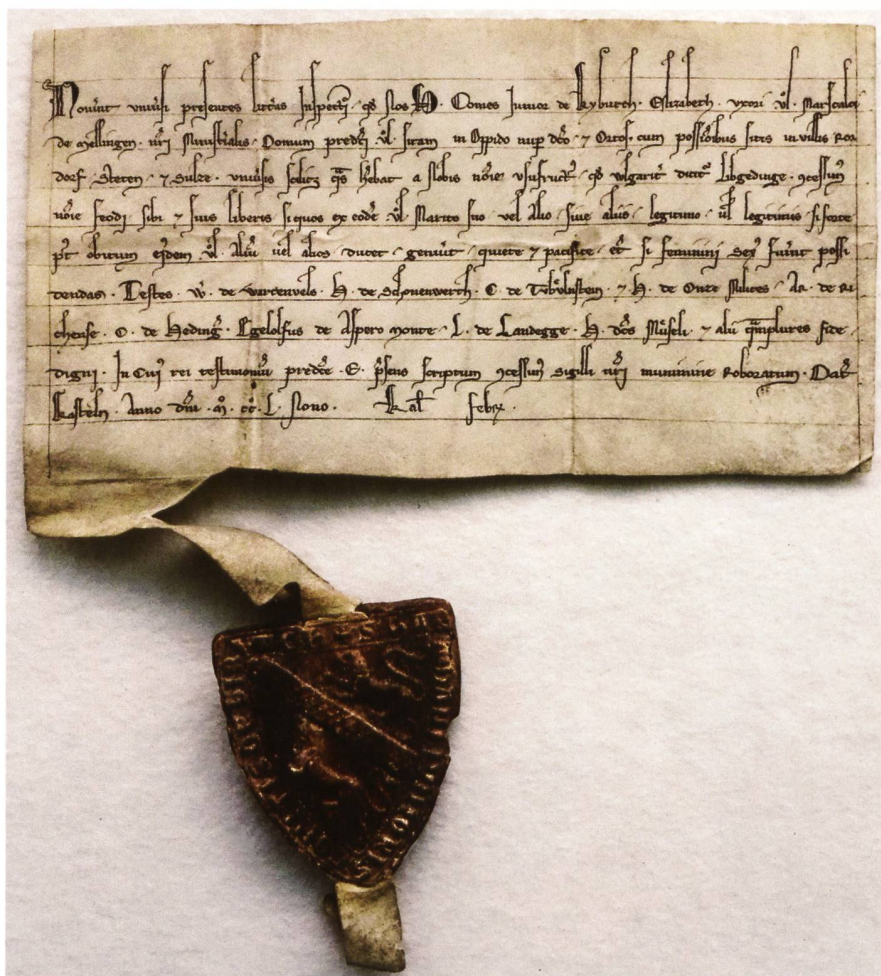 Nov̄int vniūsi presentes litt̄as Inspectʳi · qđ Nos H̄ · Comes Iunior de Kyburch · Elizabeth · vxori · Vl̄ · Marscalci
de Mellingen · nr̄i Ministʳialis · Domum predc̄i · Vl̄ · sitam in Oppido nup̄ dc̄o · ⁊ Ortos · cum possʳoibus sitis in villis Ror
dorf · Steten · ⁊ Sulze · vniūsis scilicʒ qᵃs h̄ebat a Nobis nōie vsufruct⁹ · qđ vulgarit̄ dicit᷑ Libgedinge · ɔcessim⁹
nōie feodi sibi ⁊ suis liberis si quos ex eodē · Vl̄ · Marito suo · vel Alio · siue aliis · legitimo · ul̄ legitimis · si forte
pᵒt obitum ei⁹dem · Vl̄ · Aliū uel alios · ducet · genūit · quiete ⁊ pacifice · et̄ si feminini sex⁹ fu̅int possi
dendas · Testes · W̄ · de Wartenvels · H̄ · de Schonenwerth · C · de · ⁊ H̄ · de Onze Milites · Ar · de Ri
chense · C · de Heding̅ · Egelolfus de Aspero monte · L · de Landegge · H̄ · dc̄s Mūseli · ⁊ alii qᵃmplures fide
digni · In Cui⁹ rei testimoniū predc̄e · E · p̄sens scriptum ɔcessim⁹ sigilli nr̄i munimine Roboratum · Dat̄
Kasteln · Anno dn̄i · M̊ · cc̊ · L · Nono · Kal̄ febr̄ ·